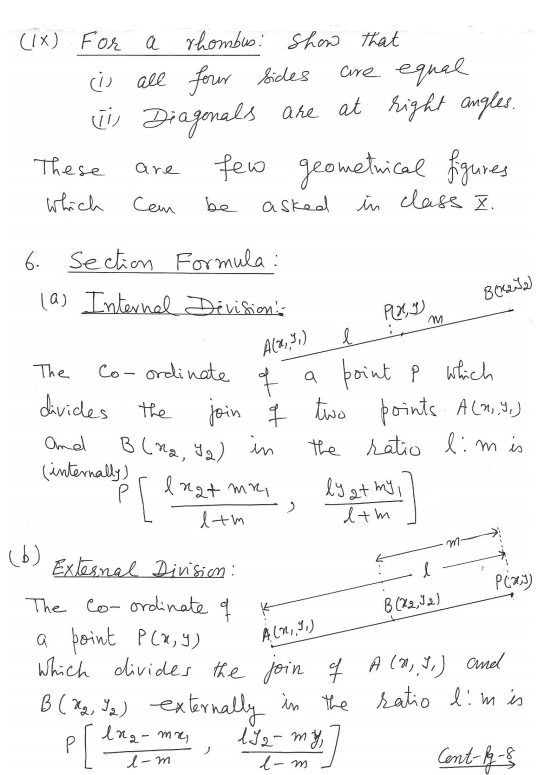 (ix) For a rhombus: Show that
(i) all four sides are equal
(ii) Diagonals are at right angles.
These are few geometrical figures
which can be asked in class X.
6. Section Formula:
(a) Internal Division:-
A(x₁, y₁) l P(x, y) m B(x₂, y₂)
The Co-ordinate of a point P which
divides the join of two points A(x₁, y₁)
and B(x₂, y₂) in the ratio l:m is
(internally)
P[(lx₂ + mx₁)/(l+m), (ly₂ + my₁)/(l+m)]
(b) External Division:
m
l
A(x₁, y₁) B(x₂, y₂) P(x, y)
The Co-ordinate of
a point P(x, y)
which divides the join of A(x₁, y₁) and
B(x₂, y₂) externally in the ratio l:m is
P[(lx₂ - mx₁)/(l-m), (ly₂ - my₁)/(l-m)]
Cont-Pg-8